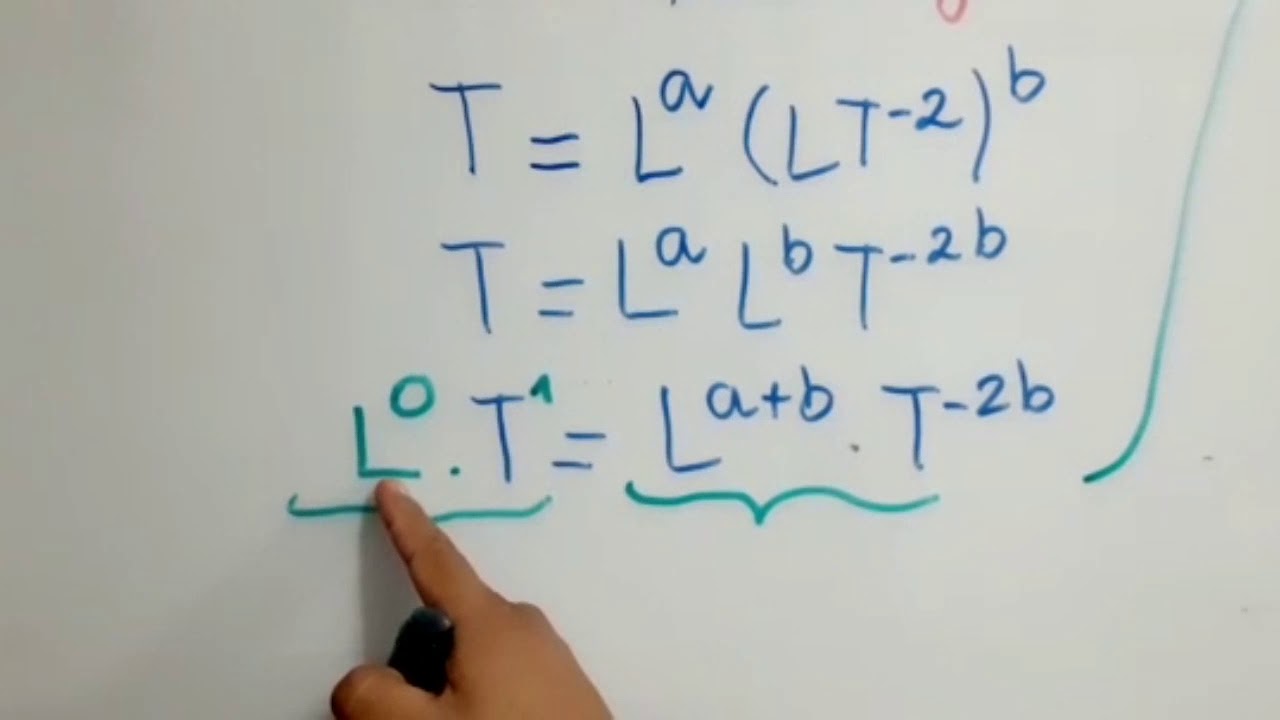 T = L^a (LT^-2)^b
T = L^a L^b T^-2b
L^0 . T^1 = L^a+b . T^-2b